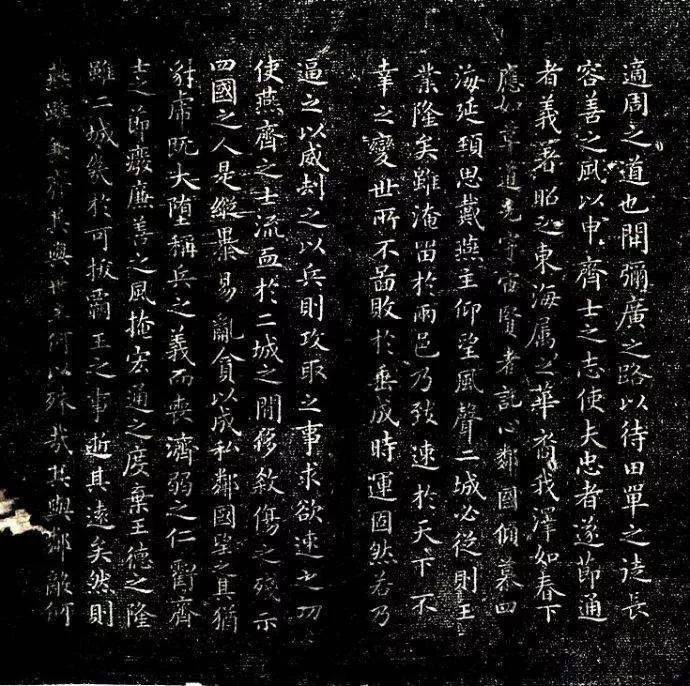 適周之道也開彌廣之路以待田單之徒長
容善之風以申齊士之志使夫忠者遂節通
者義著昭之東海屬之華裔我澤如春下
應如草道光宇宙賢者託心鄰國傾慕四
海延頸思戴燕主仰望風聲二城必從則王
業隆矣雖淹留於兩邑乃致速於天下不
幸之變世所不啚敗於垂成時運固然若乃
逼之以威劫之以兵則攻取之事求欲速之功
使燕齊之士流血於二城之閒侈煞傷之殘示
四國之人是縱暴易亂貪以成私鄰國望之其猶
豺虎既大墮稱兵之義而喪濟弱之仁虧齊
士之節廢廉善之風掩宏通之度棄王德之隆
雖二城幾於可拔霸王之事逝其遠矣然則
燕雖兼齊其與世主何以殊哉其與鄰敵何